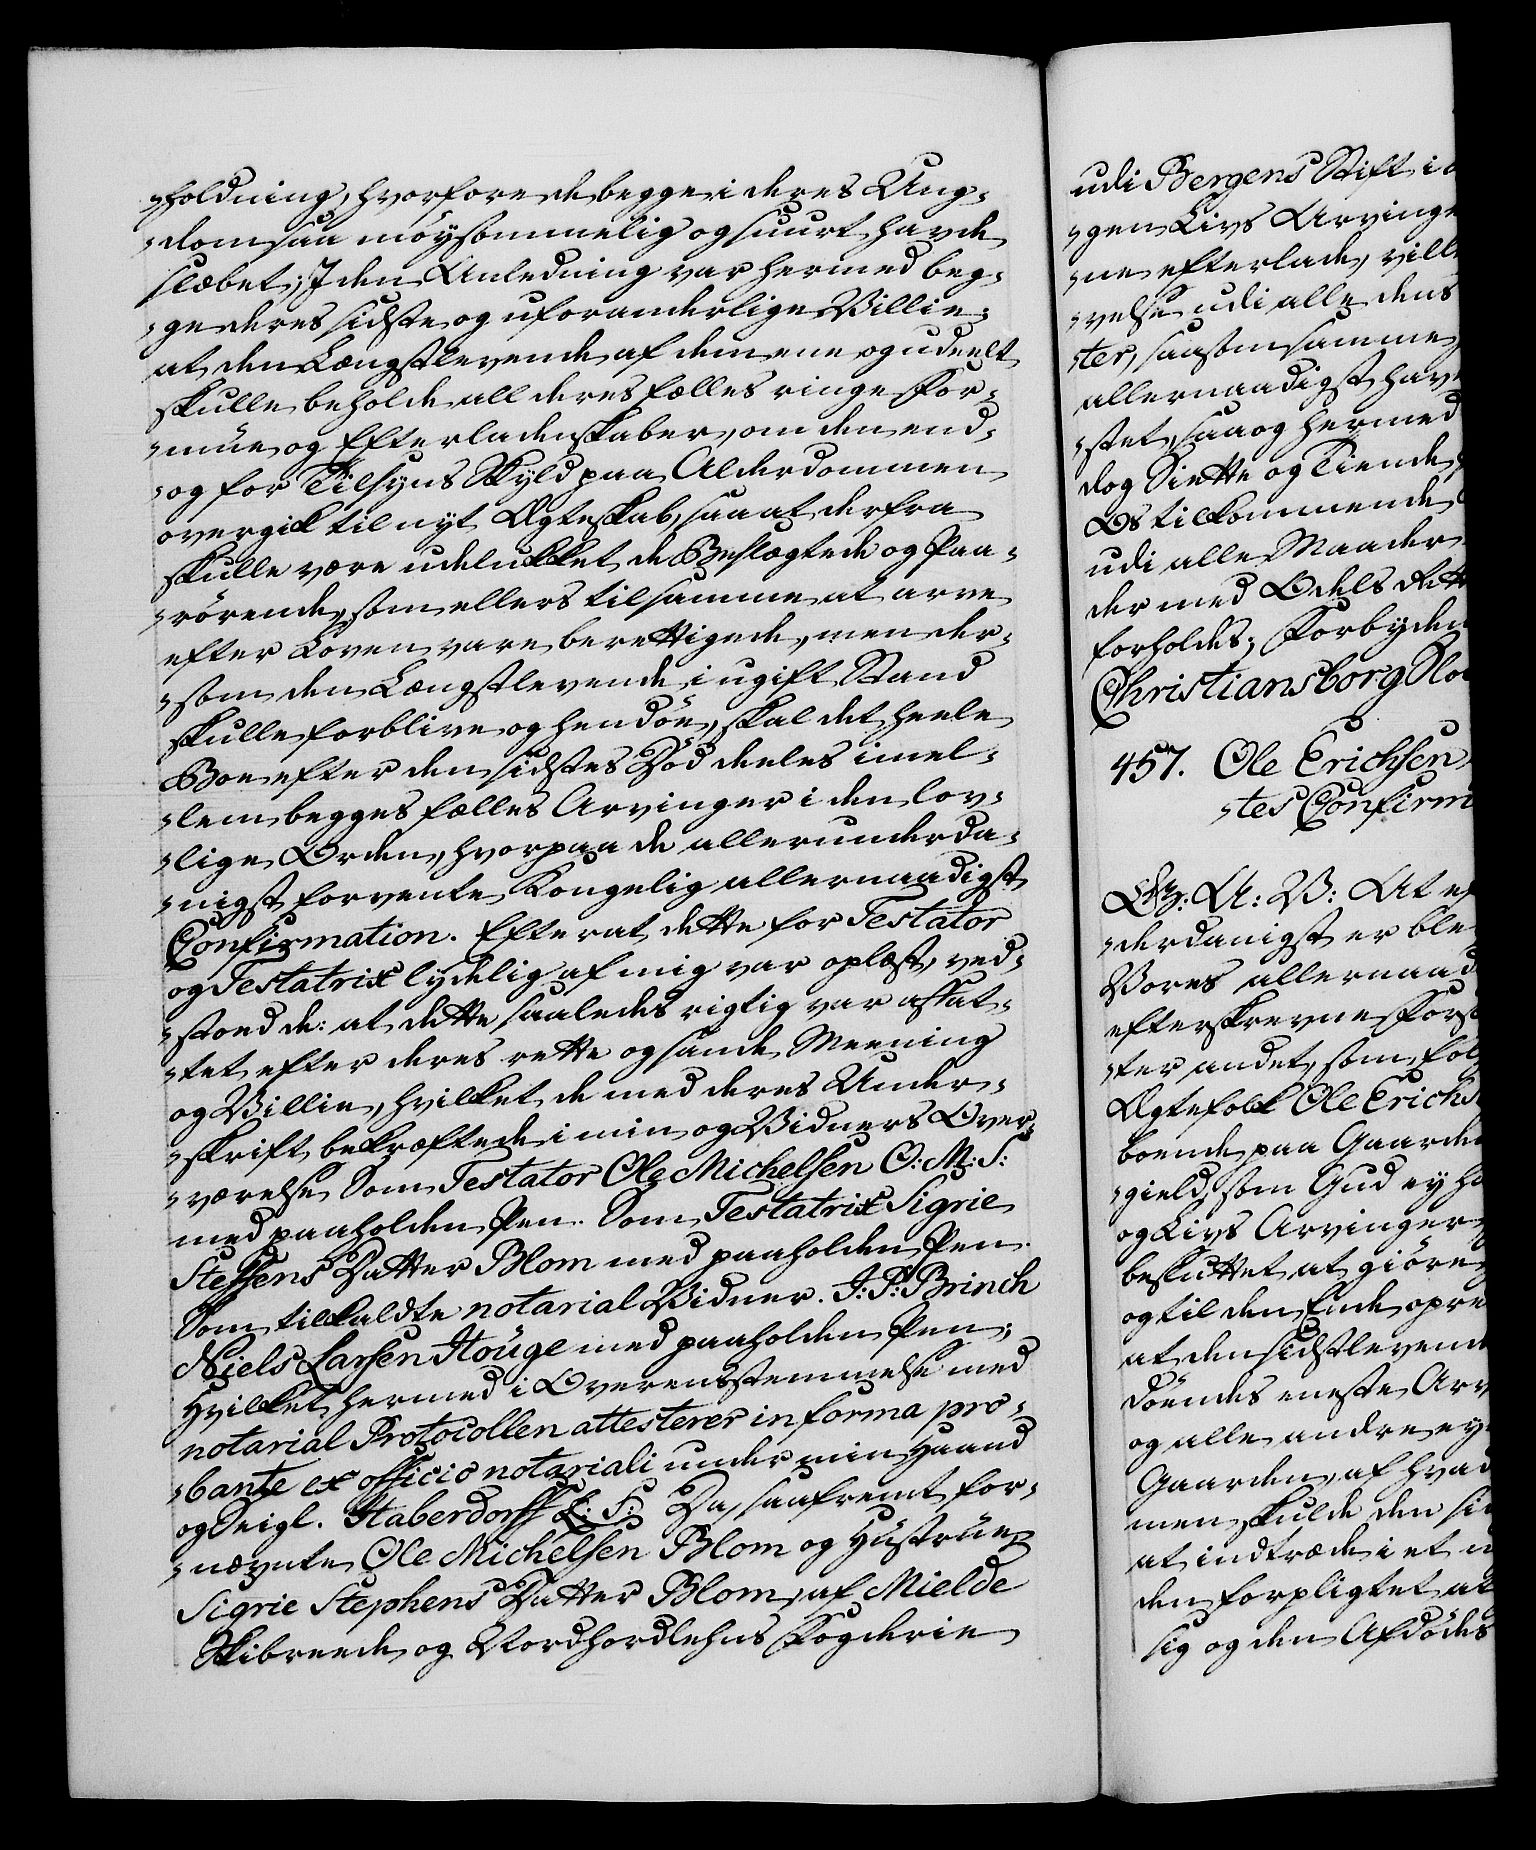 -holdning, hvorfore de begge i deres Ung-
-dom saa möysommelig og suurt havde
slæbet; I den Anledning var hermed beg-
-ge deres sidste og uforanderlige Villie,
at den Længstlevende af dem ene og udeelt
skulle beholde all deres fælles ringe For-
-mue og Efterladenskaber, om den end-
-og for Tilsyns Skyld paa Alderdommen
overgik til nyt Ægteskab, saa at derfra
skulle være udelukket de Beslægtede og Paa-
-rörende, som ellers til samme at arve
efter Loven vare berettigede, men der-
-som den Længstlevende i ugift Stand
skulle forblive og hendöe, skal det heele
Boe efter den sidstes Död deeles imel-
-lem begges fælles Arvinger i den lov-
-lige Orden, hvorpaa de allerunderda-
-nigst forvente Kongelig allernaadigst
Confirmation. Efterat dette for Testator
og Testatrix lydelig af mig var oplæst, ved-
-stoed de: at dette saaledes rigtig var affat-
-tet efter deres rette og sande Meening
og Villie, hvilket de med deres Under-
-skrift bekræftede i min og Vidners Over-
-værelse Som Testator Ole Michelsen O: M: S:
med paaholden Pen. Som Testatrix Sigrie
Steffens Datter Blom med paaholden Pen.
Som tilkaldte notarial Vidner. J: P: Brinch
Niels Larsen Houge med paaholden Pen;
Hvilket hermed i Overensstemmelse med
notarial Protocollen attesterer in forma pro-
-bante ex officio notariali under min Haand
og Seigl. Haberdorff L: S: Da, saafremt for-
-nævnte Ole Michelsen Blom og Hustrue
Sigrie Stephens Datter Blom, af Mielde
Skibreede og Nordhordlehns Fogderie
udi Bergens Stift i
-gen Livs Arvinge
-ne efterlade, ville
-velse udi alle dens
-ter, saasom samme
allernaadigst hav
-stet, saa og hermed
dog Siette og Tiende
Os tilkommende
udi alle Maader
der med Odels Rett
forholdes; Forbyden
Christiansborg Slo
457. Ole Erichsen
-tes Confirm
Gr: A: V: At ef
-derdanigst er ble
Vores allernaad
efterskrevne Forst
-ter andet, som fol
Ægtefolk Ole Erichs
boende paa Gaarde
-gield, som Gud ey ha
og Livs Arvinger
besluttet at giöre
og til den Ende opre
at den sidstlevende
döendes eneste Arv
og alle andre ey
Gaarden, af hvad
men skulde den sid
at indtræde i et n
den forpligtet at
sig og den Afdödes